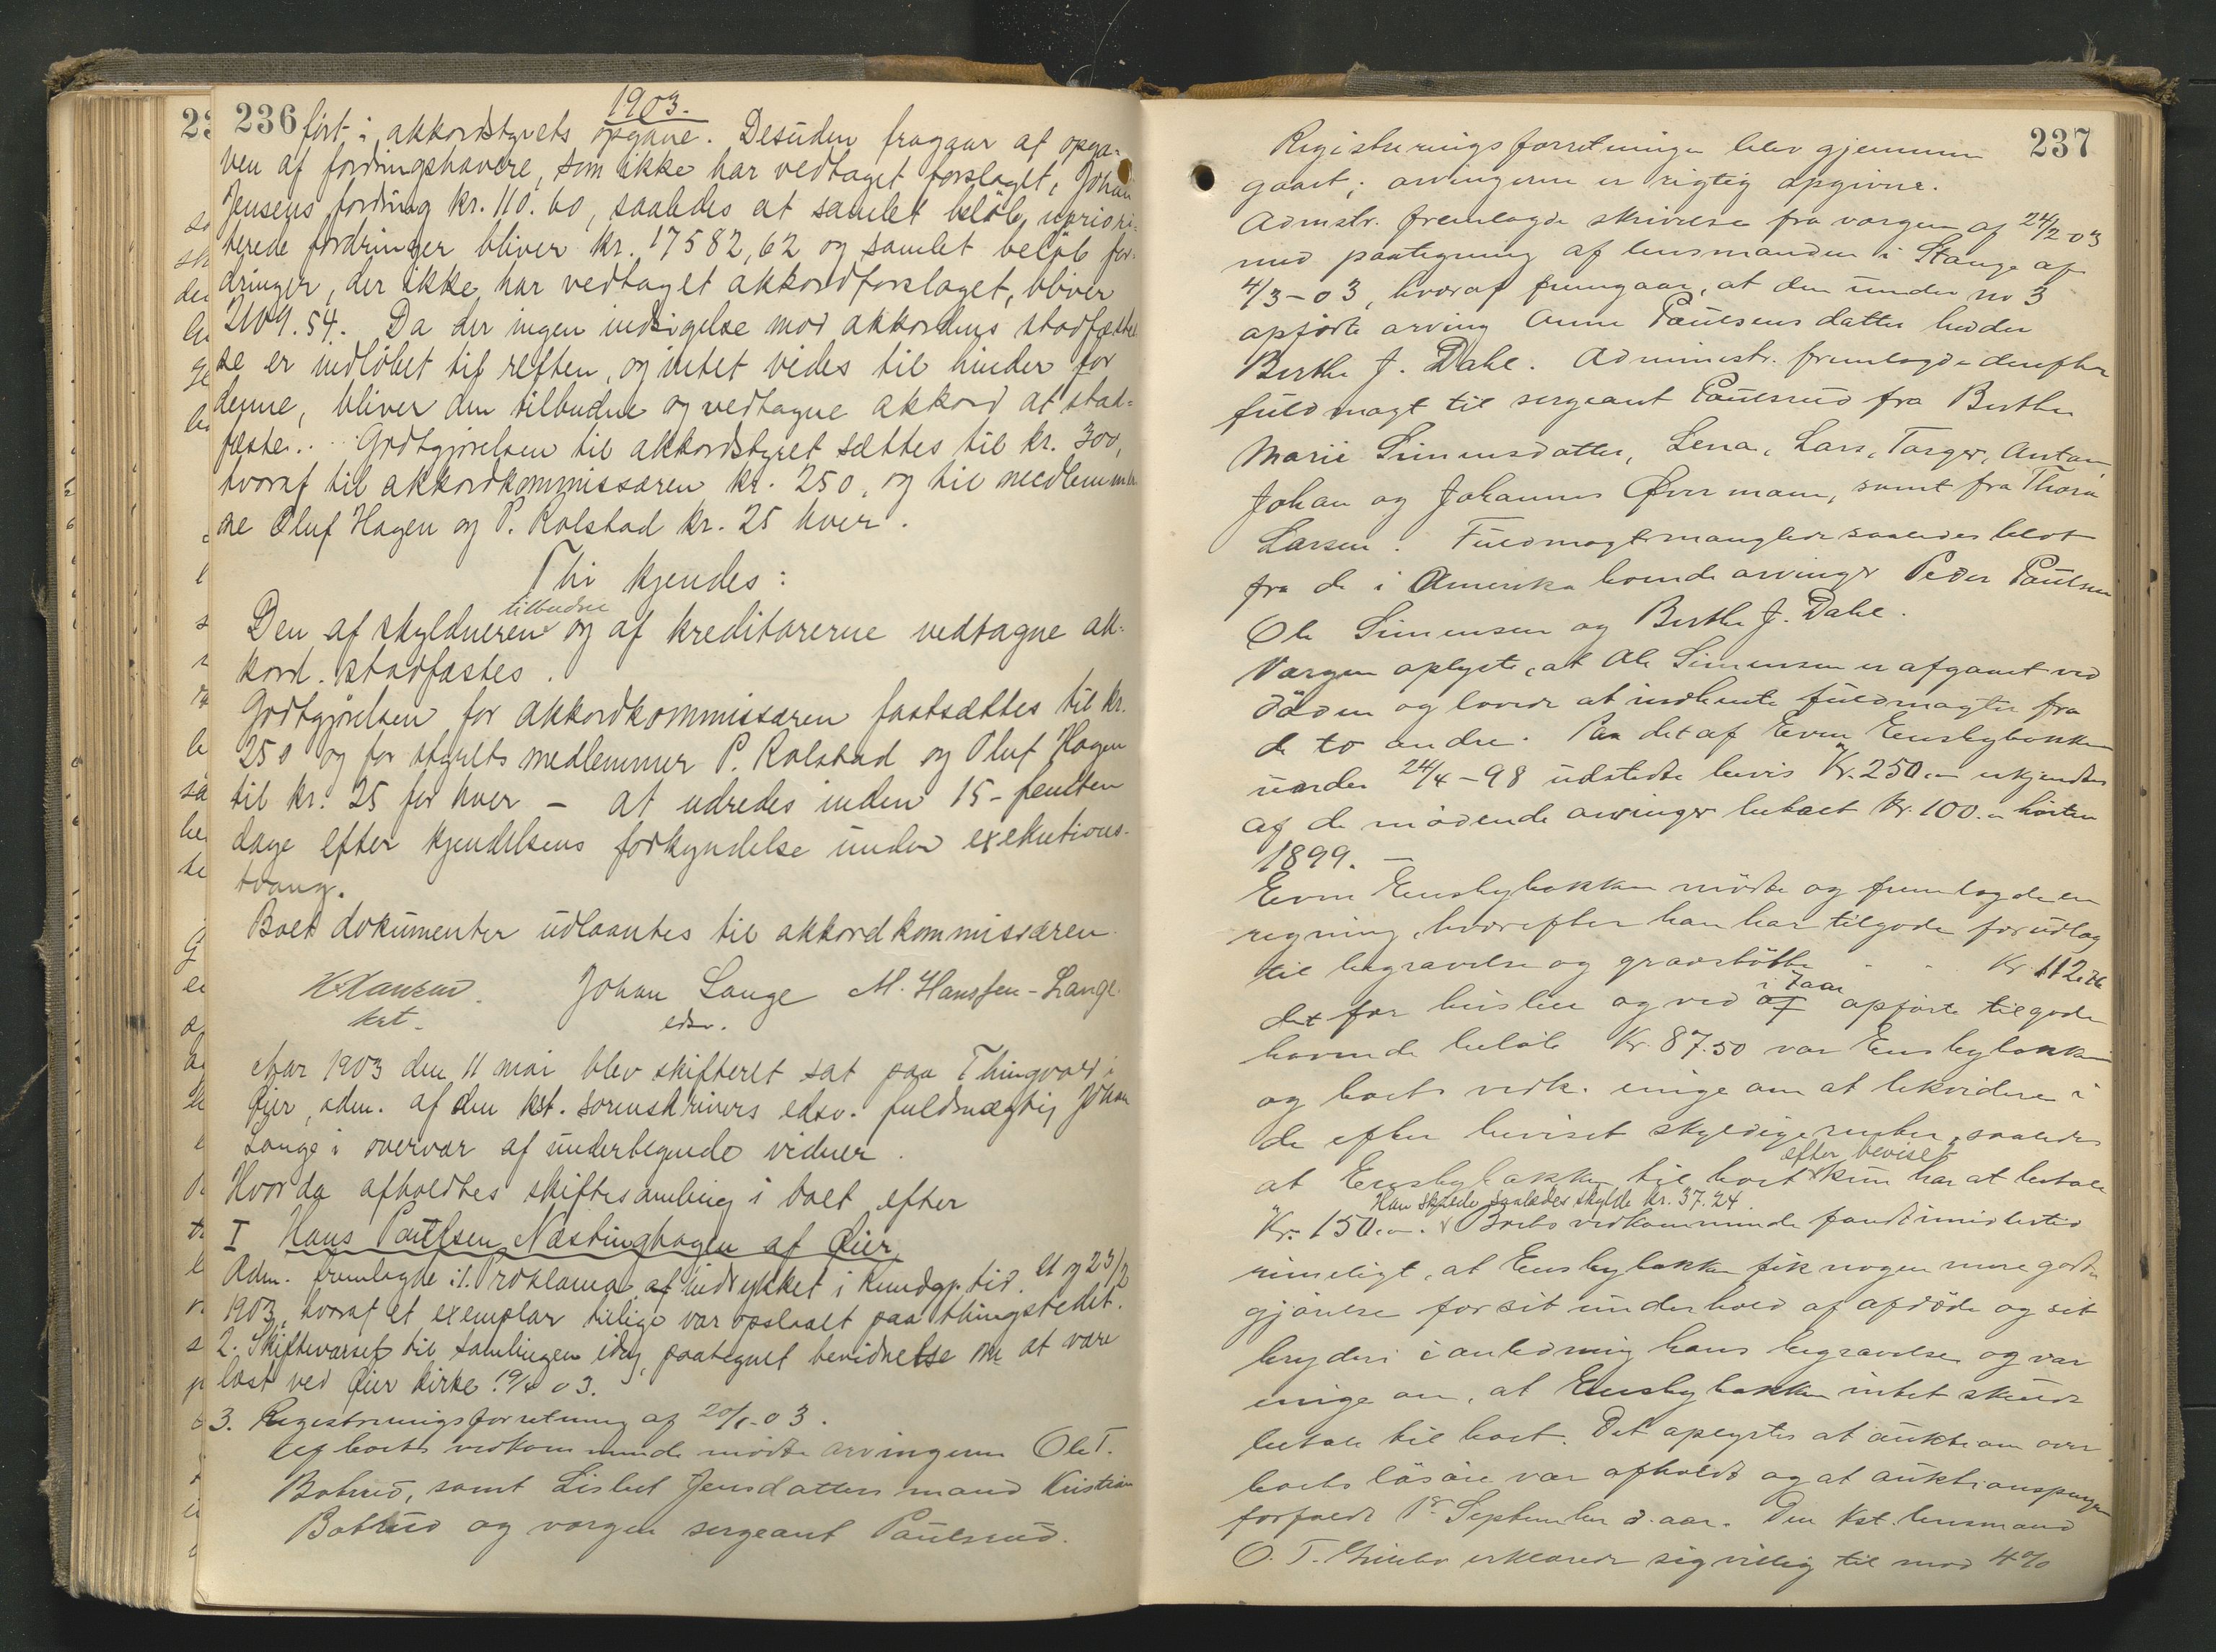 236
1903.
ført i akkordstyrets opgave. Desuden fragaar af opga-
ven af fordringshavere, som ikke har vedtaget forslaget, Johan
Jensens fordring kr. 110.60, saaledes at samlet beløb upriori-
terede fordringer bliver kr. 17582,62 og samlet beløb for-
dringer, der ikke har vedtaget akkordforslaget, bliver
2109.54. Da der ingen indsigelse mod akkordens stadfæstel-
se er indløbet til retten, og intet vides til hinder for
denne, bliver den tilbudne og vedtagne akkord at stad-
fæste. Godtgjørelsen til akkordstyret sættes til kr. 300,
hvoraf til akkordkommissæren kr. 250, og til medlemmer-
ne Oluf Hagen og P. Kolstad kr. 25 hver.
Thi kjendes:
Den af skyldneren tilbudne og af kreditorerne vedtagne ak-
kord stadfæstes.
Godtgjørelsen for akkordkommissæren fastsættes til kr.
250 og for styrets medlemmer P. Kolstad og Oluf Hagen
til kr. 25 for hver – at udredes inden 15 - femten
dage efter kjendelsens forkyndelse under exekutions-
tvang.
Boets dokumenter udlaantes til akkordkommissæren.
Johan Lange M. Hanssen-Lange
kst. edsv.
Aar 1903 den 11 mai blev skifteret sat paa Thingvold i
Øier, adm. af den kst. sorenskrivers edsv. fuldmægtig Johan
Lange i overvær af undertegnede vidner.
Hvorda afholdtes skiftesamling i boet efter
I Hans Paulsen Næstinghagen af Øier
Adm. fremlagde: 1. Proklama af indrykket i Kundgj. tid. 21 og 23/2
1903, hvoraf et exemplar tillige var opslaaet paa thingstedet.
2. Skiftevarsel til samlingen idag, paategnet bevidnelse om at være
læst ved Øier kirke 19/4 03.
3. Registreringsforretning af 20/1-03.
Af boets vedkommende mødte arvingerne Ole T.
Botrud, samt Lisbet Jensdatters mand Kristian
Botrud og vergen sergeant Paulsrud.
237
Registreringsforretningen blev gjennem
gaaet; arvingerne er rigtig opgivne.
Admstr. fremlagde skrivelse fra vergen af 24/2 03
med paategning af lensmanden i Stange af
4/3-03, hvoraf fremgaar, at den under no 3
opførte arving Anne Paulsens datter heder
Berthe J. Dahl. Administr. fremlagde derefter
fuldmagt til sergeant Paulsrud fra Berthe
Marie Simensdatter, Lena, Lars, Torger, Anton
Johan og Johannes Øvermoen, samt fra Thora
Larsen. Fuldmagt manglede saaledes blot
fra de i Amerika boende arvinger Peder Paulsen
Ole Simensen og Berthe J. Dahl.
Vergen oplyste, at Ole Simensen er afgaaet ved
døden og lovede at indhente fuldmagter fra
de to andre. Paa det af Even Ensbybakken
under 24/4-98 udstedte bevis Kr. 250.- erkjendtes
af de mødende arvinger betalt kr. 100.- høsten
1899. –
Even Ensbybakken mødte og fremlagde en
regning, hvorefter han har tilgode for udlæg
til begravelse og gravstøtte - - Kr 112.76
det for husleie og ved i 7 aar opførte tilgode
havende beløb Kr. 87.50 var Ensbybakken
og boets vedk. enige om at likvidere i
de efter beviset skyldige renter, saaledes
at Ensbybakken til boet efter beviset kun har at betale
Kr. 150.-. Han skulde saaledes skylde kr. 37.24. Boets vedkommende fandt imidlertid
rimeligt, at Ensbybakken fik nogen mere godt
gjørelse for sit underhold af afdøde og sit
bryderi i anledning hans begravelse og var
enige om, at Ensbybakken intet skulde
betale til boet. Det oplystes at auktion over
boets løsøre var afholdt og at auktionspengene
forfaldt 1ste September d. aar. Den kst. lensmand
O. T. erklærede sig villig til mod 4%